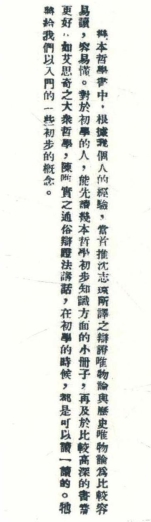 與本哲學書中，根據我個人的經驗，當首推沈志远所譯之辯證唯物論與歷史唯物論爲比較容
易讀，容易懂。對於初學的人，能先讀幾本哲學初步知識方面的小冊子，再及於比較高深的書當
更好，如艾思奇之大衆哲學，陳唯實之通俗辯證法講話，在初學的時候，都是可以讀一讀的。牠
將給我們以入門的一些初步的概念。